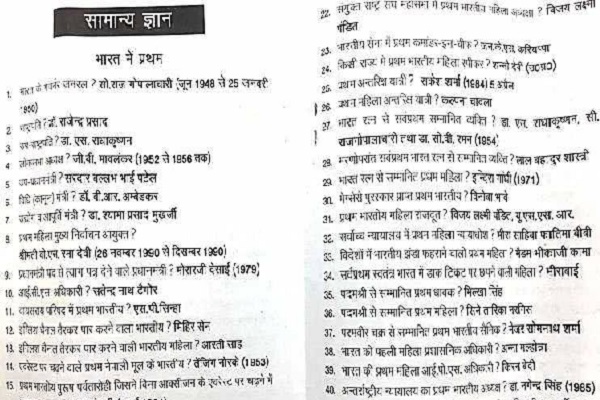 सामान्य ज्ञान
भारत में प्रथम
1. जनरल ? सी.राज गोपालाचारी (जून 1948 से 25 जनवरी
1950)
2. राष्ट्रपति ? डॉ. राजेन्द्र प्रसाद
3. उप-राष्ट्रपति ? डा. एस. राधाकृष्णन
4. लोकसभा अध्यक्ष ? जी.वी. मावलंकर (1952 से 1956 तक)
5. उप-प्रधानमंत्री ? सरदार बल्लभ भाई पटेल
6. विधि (कानून) मंत्री ? डॉ. बी.आर. अम्बेडकर
7. उद्योग व आपूर्ति मंत्री ? डा. श्यामा प्रसाद मुखर्जी
8. प्रथम महिला मुख्य निर्वाचन आयुक्त ?
श्रीमती वी.एस. रमा देवी (26 नवम्बर 1990 से दिसम्बर 1990)
9. प्रधानमंत्री पद से त्याग पत्र देने वाले प्रधानमन्त्री ? मोरारजी देसाई (1979)
10. आई.सी.एन अधिकारी ? सत्येन्द्र नाथ टैगोर
11. वायसराय परिषद में प्रथम भारतीय ? एस.पी.सिन्हा
12. इंग्लिश चैनल तैरकर पार करने वाला भारतीय ? मिहिर सेन
13. इंग्लिश चैनल तैरकर पार करने वाली भारतीय महिला ? आरती साहा
14. एवरेस्ट पर चढ़ने वाले प्रथम नेपाली मूल के भारतीय ? तेंजिग नोरके (1953)
15. प्रथम भारतीय पुरूष पर्वतारोही जिसने बिना आक्सीजन के एवरेस्ट पर चढ़ने में
22. संयुक्त राष्ट्र संघ महासभा में प्रथम भारतीय महिला अध्यक्ष ? विजय लक्ष्मी
पंडित
23. भारतीय सेना में प्रथम कमांडर-इन-चीफ ? करियप्पा
24. किसी राज्य में प्रथम भारतीय महिला स्पीकर ? शन्नो देवी
25. प्रथम अन्तरिक्ष यात्री ? राकेश शर्मा (1984) 5 अप्रैल
26. प्रथम महिला अन्तरिक्ष यात्री ? कल्पना चावला
27. भारत रत्न से सर्वप्रथम सम्मानित व्यक्ति ? डा. एस. राधाकृष्णन, सी.
राजगोपालाचारी तथा डा. सी.वी. रमन (1954)
28. मरणोपरांत सर्वप्रथम भारत रत्न से सम्मानित व्यक्ति ? लाल बहादुर शास्त्री
29. भारत रत्न से सम्मानित प्रथम महिला ? इन्दिरा गांधी (1971)
30. मैग्सेसे पुरस्कार प्राप्त प्रथम भारतीय ? विनोबा भावे
31. प्रथम भारतीय महिला राजदूत ? विजय लक्ष्मी पंडित, यू.एस.एस. आर.
32. सर्वोच्च न्यायालय में प्रथम महिला न्यायधीश ? मीरा साहिबा फातिमा बीवी
33. विदेशों में भारतीय झंडा फहराने वाली प्रथम महिला ? मैडम भीकाजी कामा
34. सर्वप्रथम स्वतंत्र भारत में डाक टिकट पर छपने वाली महिला ? मीराबाई
35. पदमश्री से सम्मानित प्रथम धावक ? मिल्खा सिंह
36. पदमश्री से सम्मानित प्रथम महिला ?
37. परमवीर चक्र से सम्मानित प्रथम भारतीय सैनिक ? मेजर सोमनाथ शर्मा
38. भारत की पहली महिला प्रशासनिक अधिकारी ? अन्ना मल्होत्रा
39. भारत की प्रथम महिला आई.पी.एस. अधिकारी ? किरन बेदी
40. अन्तर्राष्ट्रीय न्यायालय का प्रथम भारतीय अध्यक्ष ? डा. नगेन्द्र सिंह (1965)